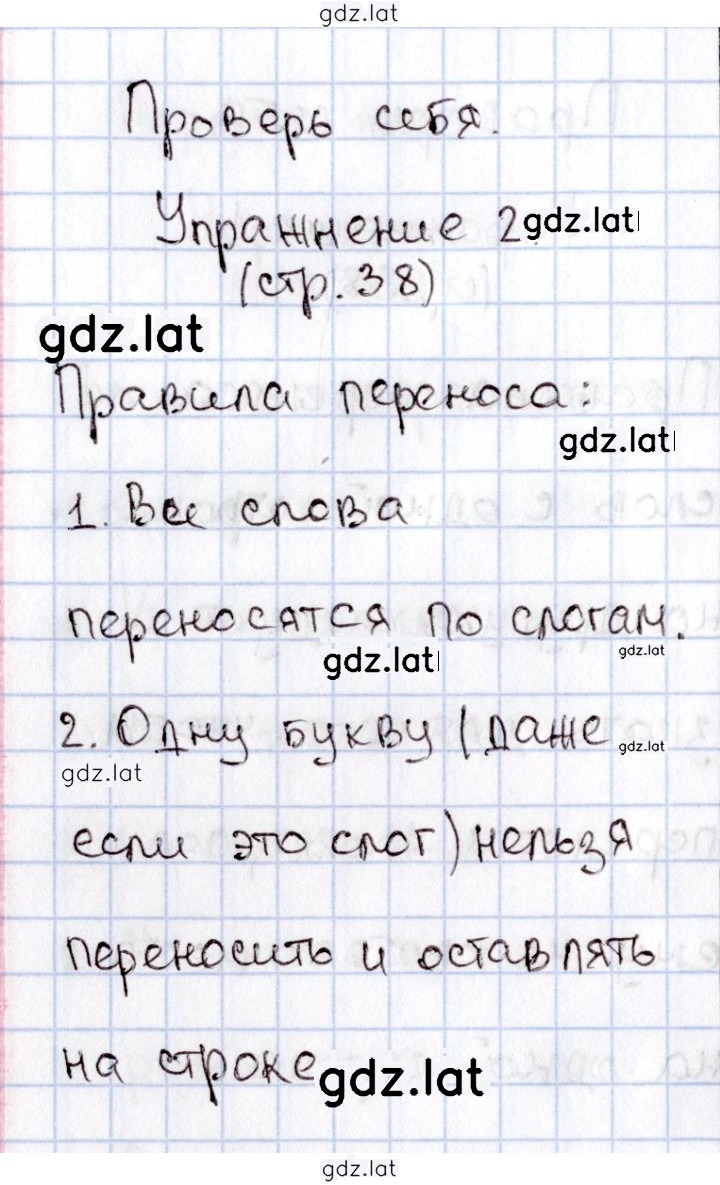 gdz.lat
Проверь себя.
Упражнение 2. gdz.lat
(стр. 38)
gdz.lat
Правила переноса:
gdz.lat
1. Все слова
переносятся по слогам.
gdz.lat gdz.lat
2. Одну букву (даже gdz.lat
gdz.lat
если это слог) нельзя
переносить и оставлять
на строке gdz.lat
gdz.lat